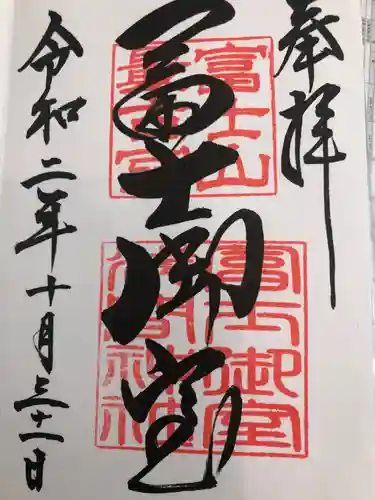 奉拝
富士山
最古宮
冨士御室
富士御室
浅間神社
令和二年十月三十一日